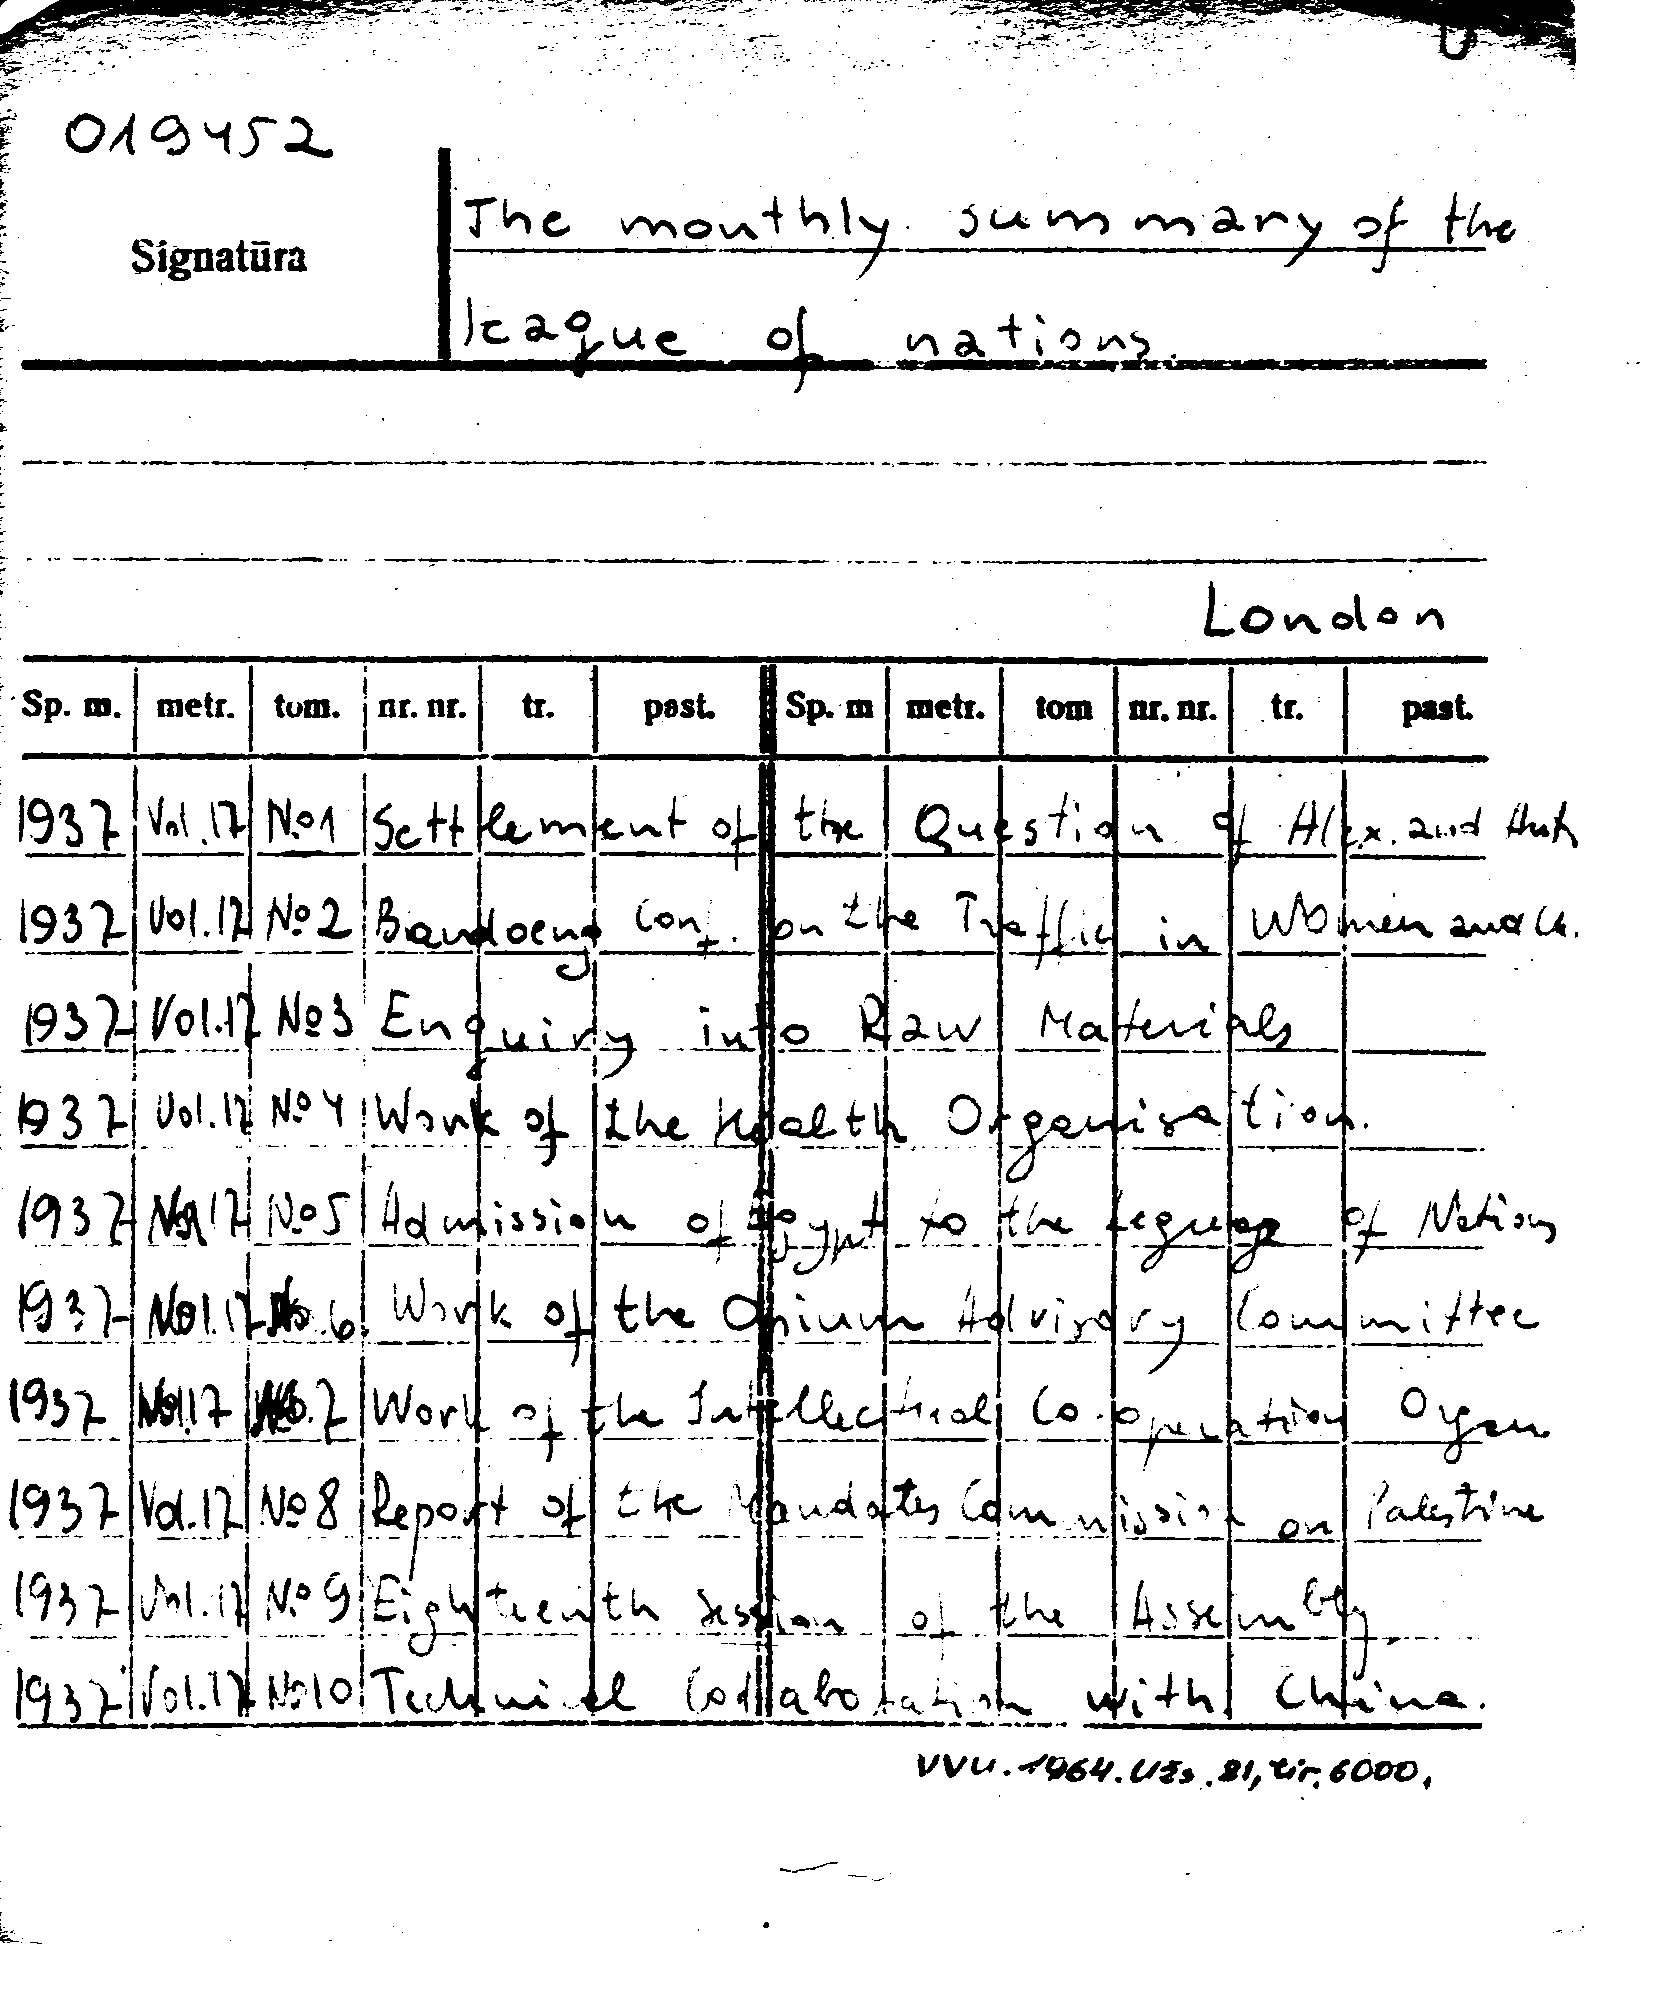 019452
Signatūra
The monthly summary of the
league of nations.
London
Sp. m. metr. tom. nr. nr. tr. past. Sp. m metr. tom nr. nr. tr. past.
1937 Vol.17 No1 Settlement of the Question of Alex. and
1937 Vol.17 No2 Bandoeng Conf. on the Traffic in Women and Ch.
1937 Vol.17 No3 Enquiry into Raw Materials
1937 Vol.17 No4 Work of the Health Organisation.
1937 Vol.17 No5 Admission of Egypt to the League of Nations
1937 Vol.17 No.6. Work of the Opium Advisory Committee
1937 Vol.17 No.7 Work of the Intellectual Co-operation Organ
1937 Vol.17 No8 Report of the Mandates Commission on Palestine
1937 Vol.17 No9 Eighteenth session of the Assembly.
1937 Vol.17 No10 Technical Collaboration with China.
VVU. 1964. Užs. 81, tir. 6000.